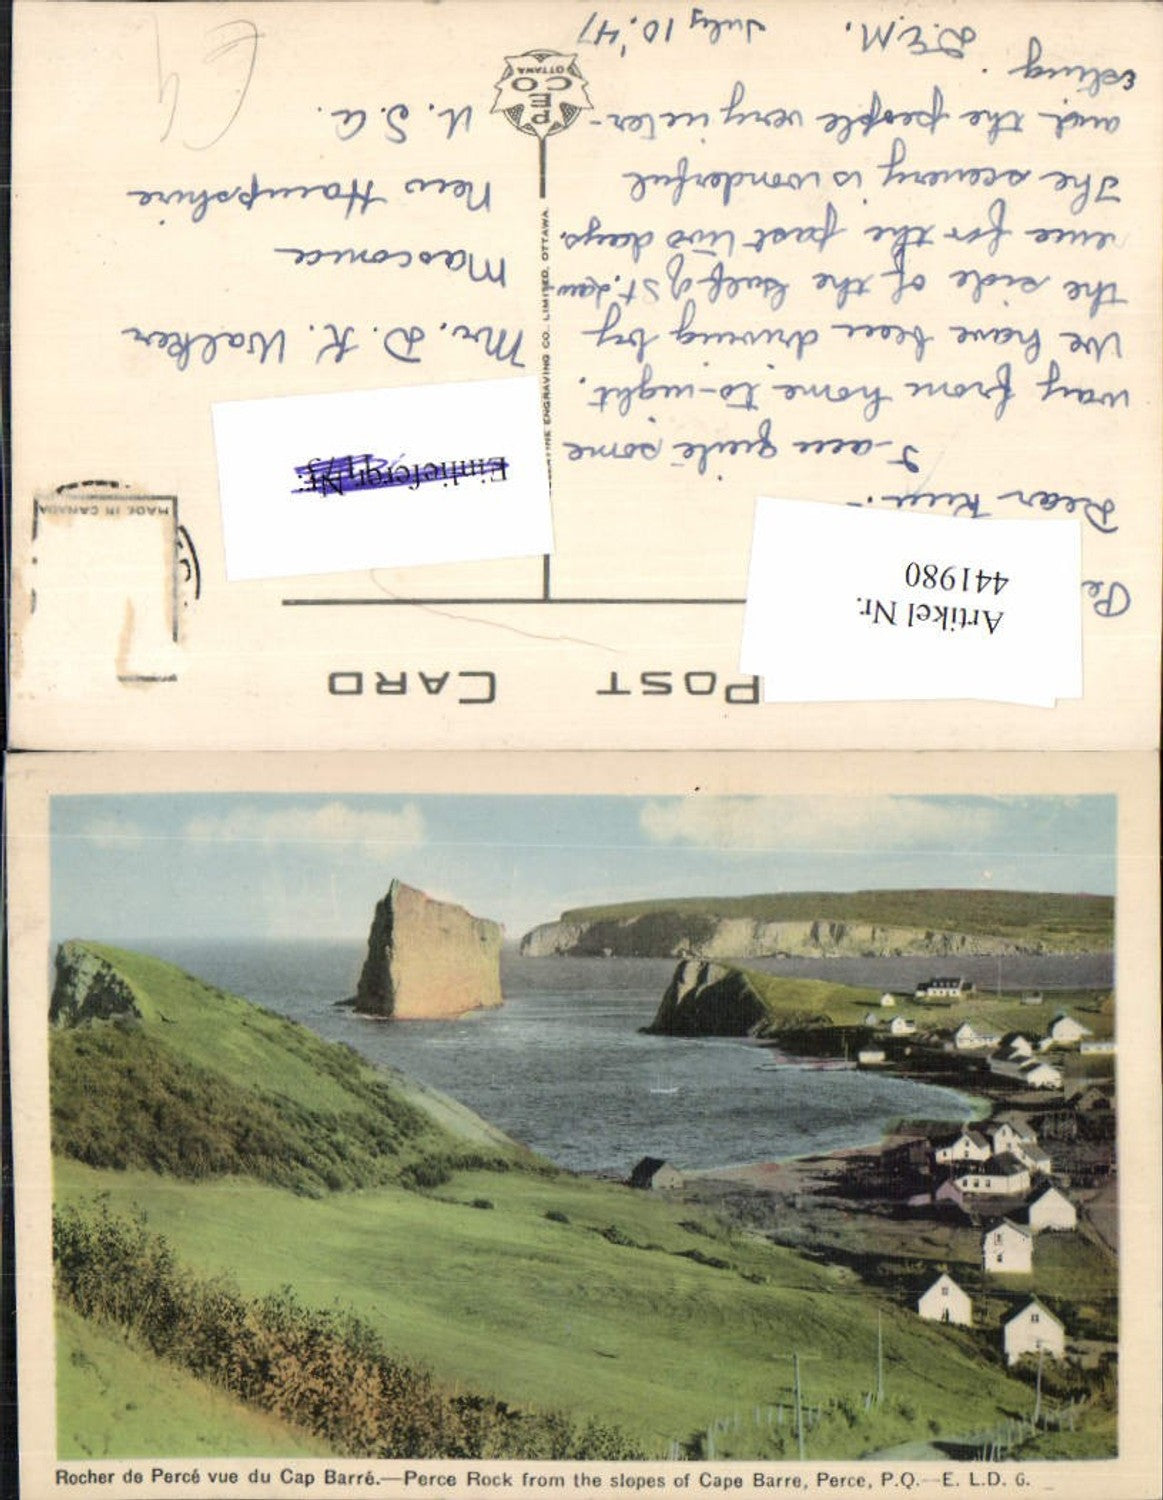 POST CARD
Artikel Nr.
441980
MADE IN CANADA
Einlieferg. Nr:
Pe
Dear Ken:-
I am quite some
way from home to-night.
We have been driving by
the side of the Gulf of St. Law-
rence for the past two days.
The scenery is wonderful
and the people very inter-
esting.
D.E.M.
July 10, '47
Mr. D. K. Walker
Mascoma
New Hampshire
U. S. A.
ENGRAVING CO. LIMITED, OTTAWA
PE
CO
OTTAWA
Rocher de Percé vue du Cap Barré.—Perce Rock from the slopes of Cape Barre, Perce, P.Q.—E. L.D. G.